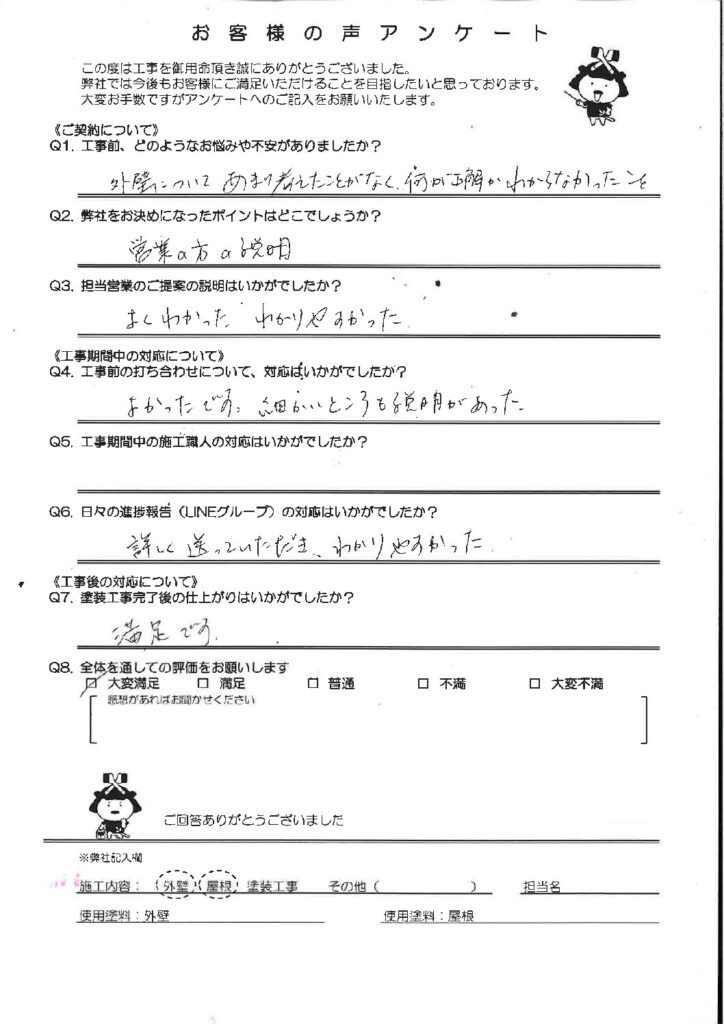 お客様の声アンケート
この度は工事を御用命頂き誠にありがとうございました。
弊社では今後もお客様にご満足いただけることを目指したいと思っております。
大変お手数ですがアンケートへのご記入をお願いいたします。
《ご契約について》
Q1. 工事前、どのようなお悩みや不安がありましたか？
外壁について あまり考えたことがなく、何が正解かわからなかったこと
Q2. 弊社をお決めになったポイントはどこでしょうか？
営業の方の説明
Q3. 担当営業のご提案の説明はいかがでしたか？
よくわかった わかりやすかった
《工事期間中の対応について》
Q4. 工事前の打ち合わせについて、対応はいかがでしたか？
よかったです。細かいところも説明があった
Q5. 工事期間中の施工職人の対応はいかがでしたか？
Q6. 日々の進捗報告（LINEグループ）の対応はいかがでしたか？
詳しく送っていただき、わかりやすかった
《工事後の対応について》
Q7. 塗装工事完了後の仕上がりはいかがでしたか？
満足です。
Q8. 全体を通しての評価をお願いします
☑ 大変満足 □ 満足 □ 普通 □ 不満 □ 大変不満
感想があればお聞かせください
ご回答ありがとうございました
※弊社記入欄
施工内容：（外壁）（屋根）塗装工事 その他（ ） 担当名
使用塗料：外壁 使用塗料：屋根